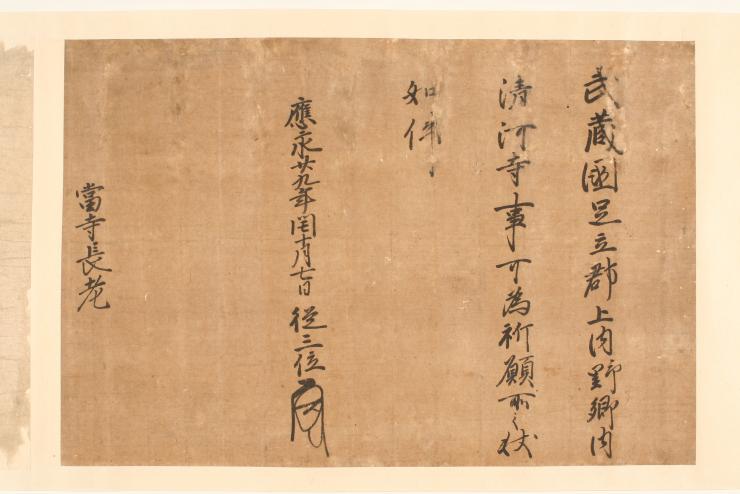 武蔵國足立郡上内野郷内
清河寺事可為祈願所之状
如件
應永廿九年閏十月七日 従三位
當寺長老